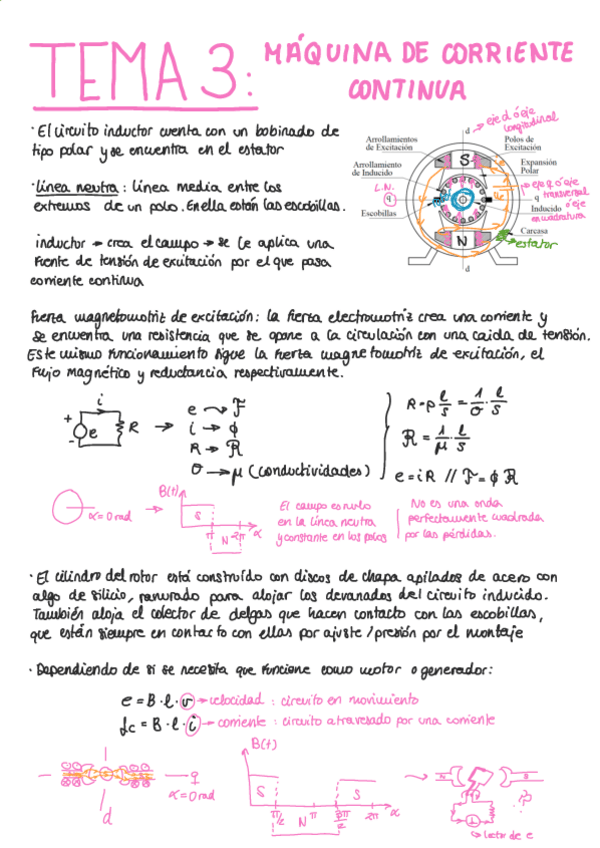 TEMA 3: MÁQUINA DE CORRIENTE
CONTINUA
· El circuito inductor cuenta con un bobinado de
tipo polar y se encuentra en el estator
· Línea neutra: línea media entre los
extremos de un polo. En ella están las escobillas.
inductor → crea el campo → se le aplica una
fuente de tensión de excitación por el que pasa
corriente continua
d → eje d ó eje
longitudinal
Arrollamientos
de Excitación
Polos de
Excitación
Arrollamiento
de Inducido
Expansión
Polar
S
L.N.
q
→ eje q ó eje
transversal
q
ó eje
en cuadratura
Inducido
Escobillas
Carcasa
N
→ estator
d
Fuerza magnetomotriz de excitación: la fuerza electromotriz crea una corriente y
se encuentra una resistencia que se opone a la circulación con una caída de tensión.
Este mismo funcionamiento sigue la fuerza magnetomotriz de excitación, el
flujo magnético y reductancia respectivamente.
i
+ e - R →
e → F
i → ϕ
R → R
σ → μ (conductividades)
R = ρ l/s = 1/σ · l/s
R = 1/μ · l/s
e = iR // F = ϕ R
α = 0 rad
B(t)
S
π 2π α
N
El campo es nulo
en la línea neutra
y constante en los polos
No es una onda
perfectamente cuadrada
por las pérdidas.
· El cilindro del rotor está construído con discos de chapa apilados de acero con
algo de silicio, ranurado para alojar los devanados del circuito inducido.
También aloja el colector de delgas que hacen contacto con las escobillas,
que están siempre en contacto con ellas por ajuste / presión por el montaje
· Dependiendo de si se necesita que funcione como motor o generador:
e = B · l · v → velocidad : circuito en movimiento
fc = B · l · i → corriente : circuito atravesado por una corriente
q
α = 0 rad
d
B(t)
S S
π/2 π 3π/2 2π α
N
N S
→ lector de e